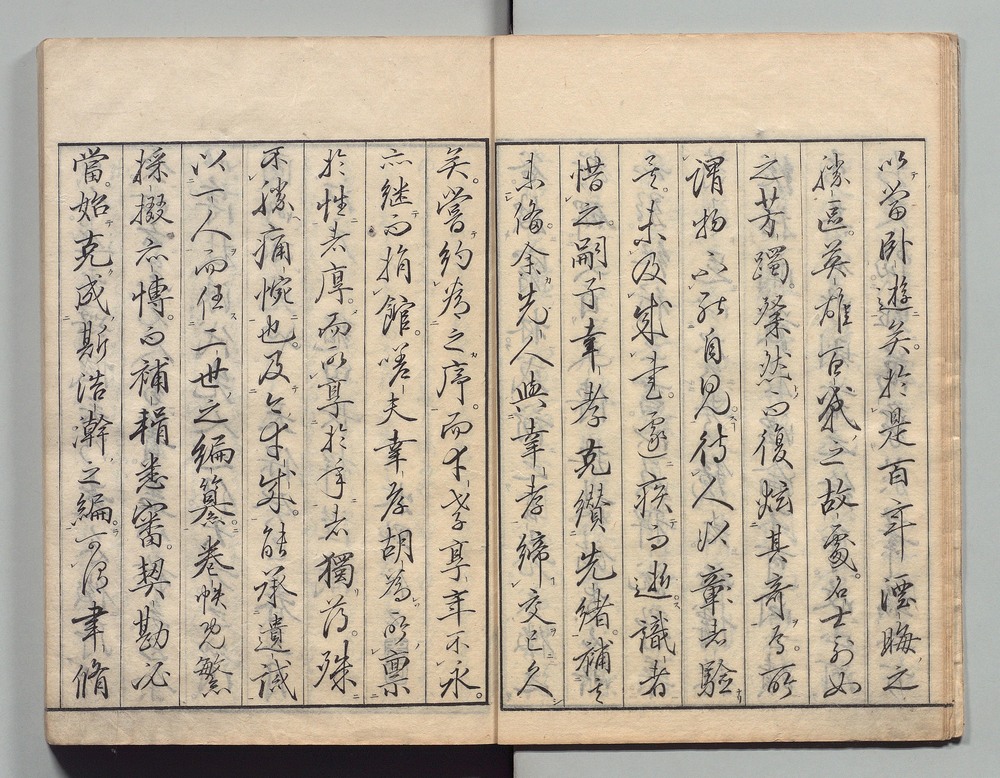 以當臥遊矣於是百年湮晦之
勝區英雄百戰之故處名士列女
之芳躅粲然而復炫其奇乎所
謂物不能自見待人以彰者驗
矣未及成書遽疾而逝識者
惜之嗣子幸孝克纘先緒補其
未備余先人與幸孝締交已久
矣嘗約為之序而幸孝享年不永
亦継而捐館嗟夫幸孝胡為所稟
於性者厚而所享於年者獨薄殊
不勝痛惋也及今幸成能承遺誡
以一人而任二世之編纂卷帙既繁
採掇亦博而補輯悉審契勘必
當始克成斯浩瀚之編可謂聿脩